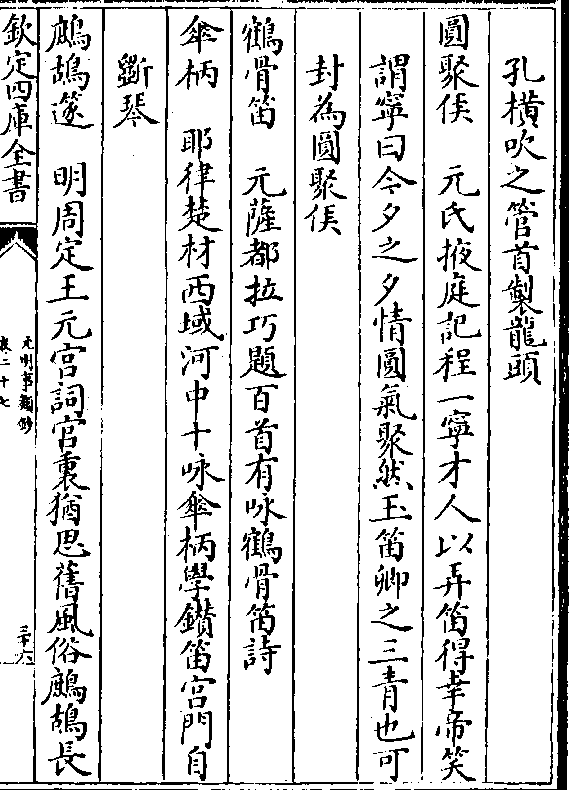 孔橫吹之管首製龍頭
圓聚侯　元氏掖庭記程一寧才人以弄笛得幸帝笑
謂寧曰今夕之夕情圓氣聚然玉笛卿之三青也可
封為圓聚侯
鶴骨笛　元薩都拉巧題百首有咏鶴骨笛詩
傘柄　耶律楚材西域河中十咏傘柄學鑚笛宫門自
斵琴
鷓鴣篴　明周定王元宫詞宫裏猶思舊風俗鷓鴣長
欽定四庫全書
元明事類鈔
卷二十七
三十六